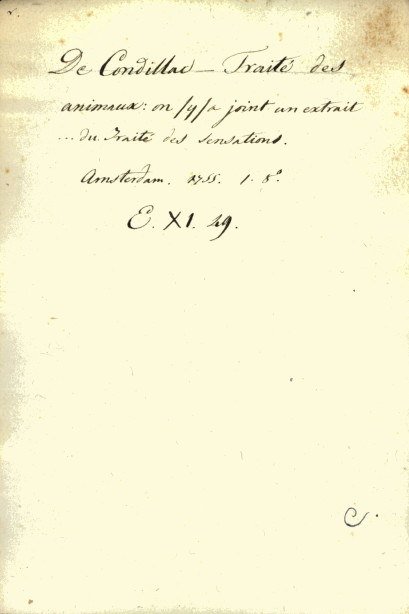 De Condillac — Traité des
animaux: on /y/ a joint un extrait
... du Traité des sensations.
Amsterdam. 1755. 1. 8°.
E. XI. 49.
C.